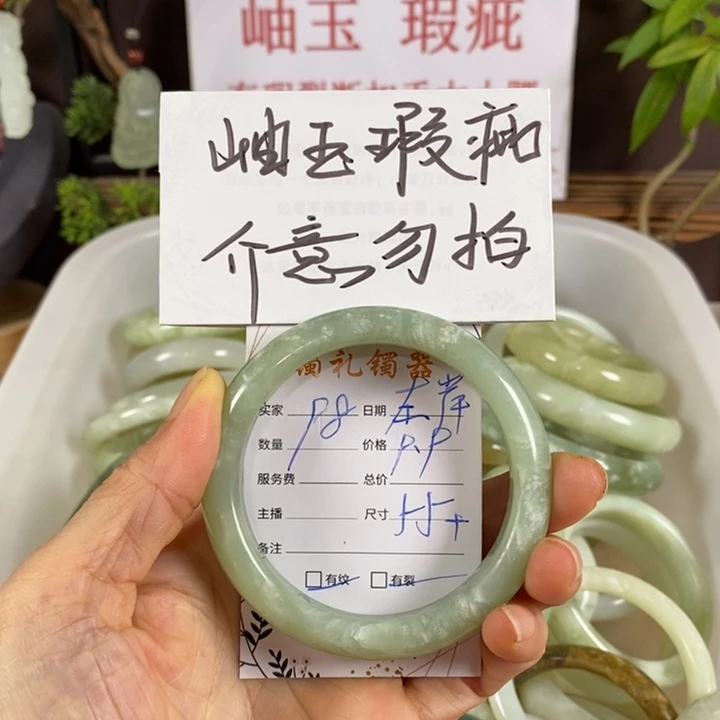 岫玉 瑕疵
岫玉瑕疵
介意勿拍
礼镯器
买家 日期
数量 价格
服务费 总价
主播 尺寸 55+
备注
有纹 有裂